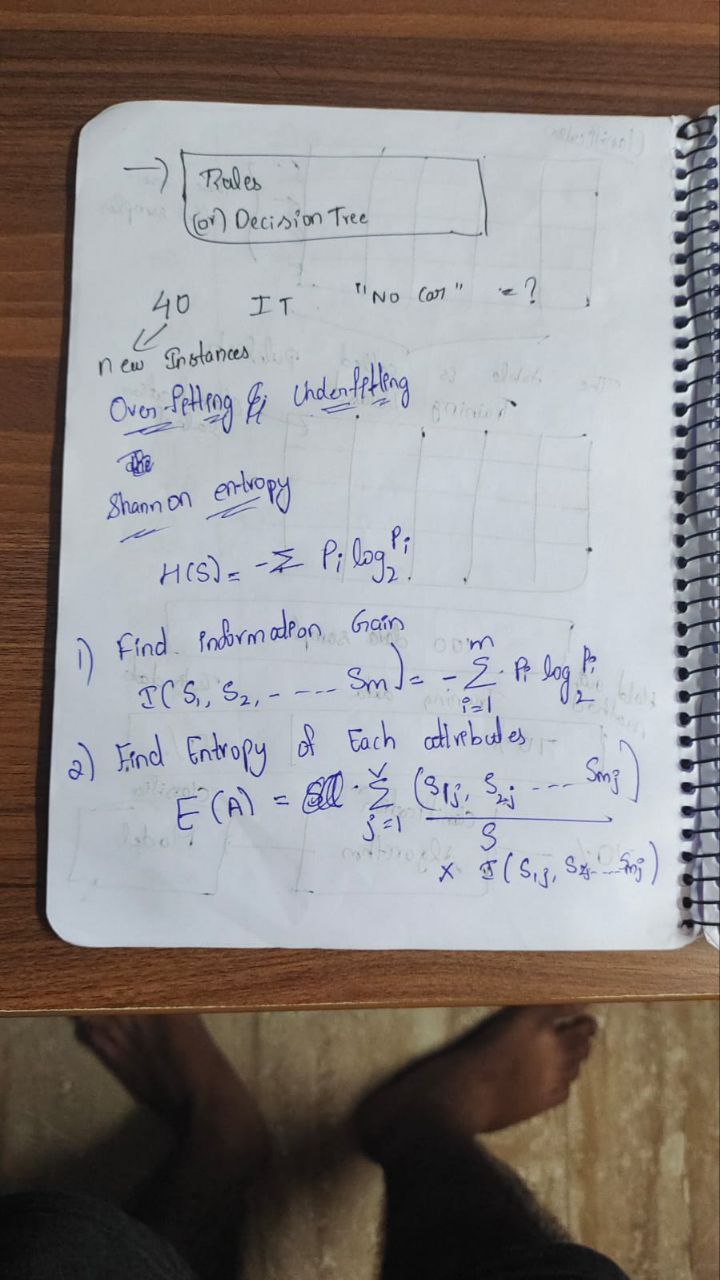 → Rules
(or) Decision Tree
40 IT "No Car" = ?
new Instances
Over fitting & Underfitting
Shannon entropy
H(S) = -Σ Pi log2 Pi
1) Find information Gain
I(S1, S2, - - --- Sm) = - Σ i=1 m Pi log2 Pi
2) Find Entropy of Each attributes
E(A) = Σ j=1 v (S1j, S2j --- Smj) / S
× I(S1j, S2j ... Smj)